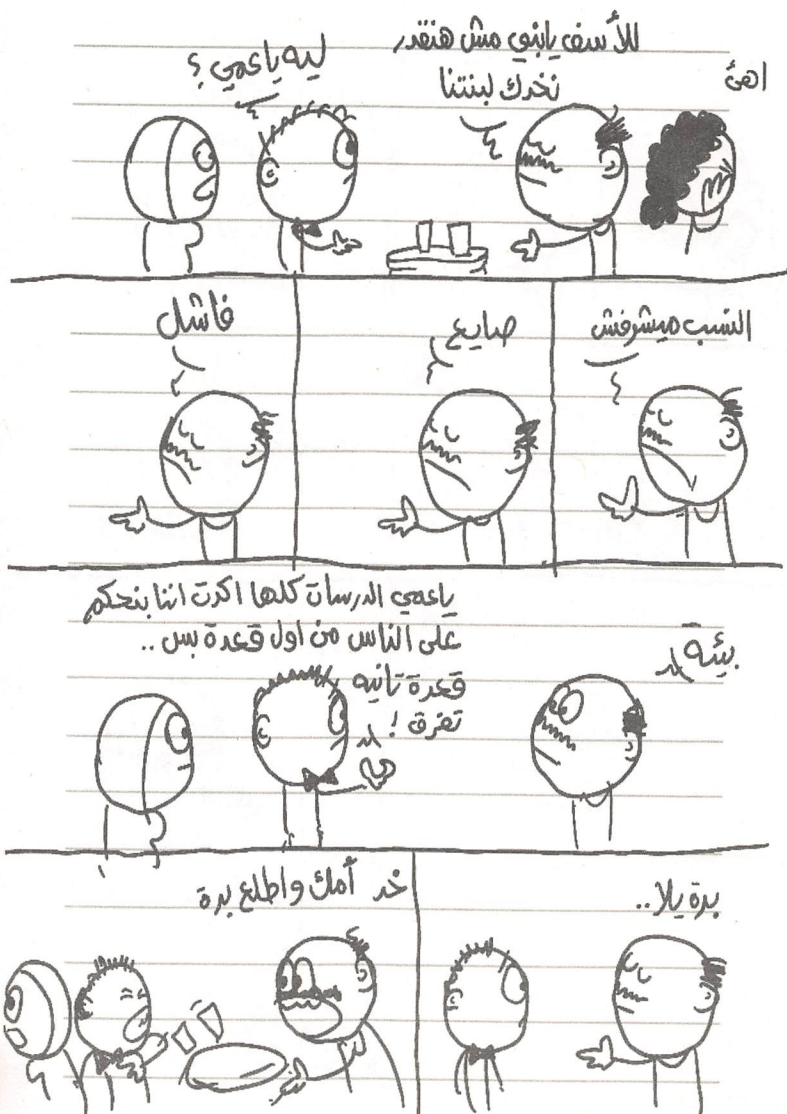 اهئ
للأسف يابني مش هنقدر
نخدك لبنتنا
ليه ياعمي؟
النسب ميشرفش
صايع
فاشل
بيئه
ياعمي الدرسات كلها اكدت اننا بنحكم
على الناس من اول قعدة بس..
قعدة تانيه
تفرق!
برة يلا..
خد أمك واطلع برة